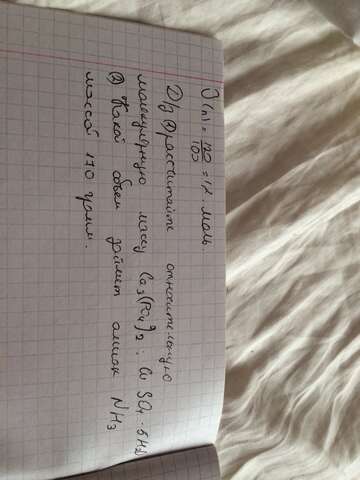 (n) = 120/100 = 1,2 моль.
D/з ① рассчитайте относительную
молекулярную массу Ca₃(PO₄)₂; Cu SO₄ · 5H₂
② Какой объем займет аммиак NH₃
массой 170 грамм.